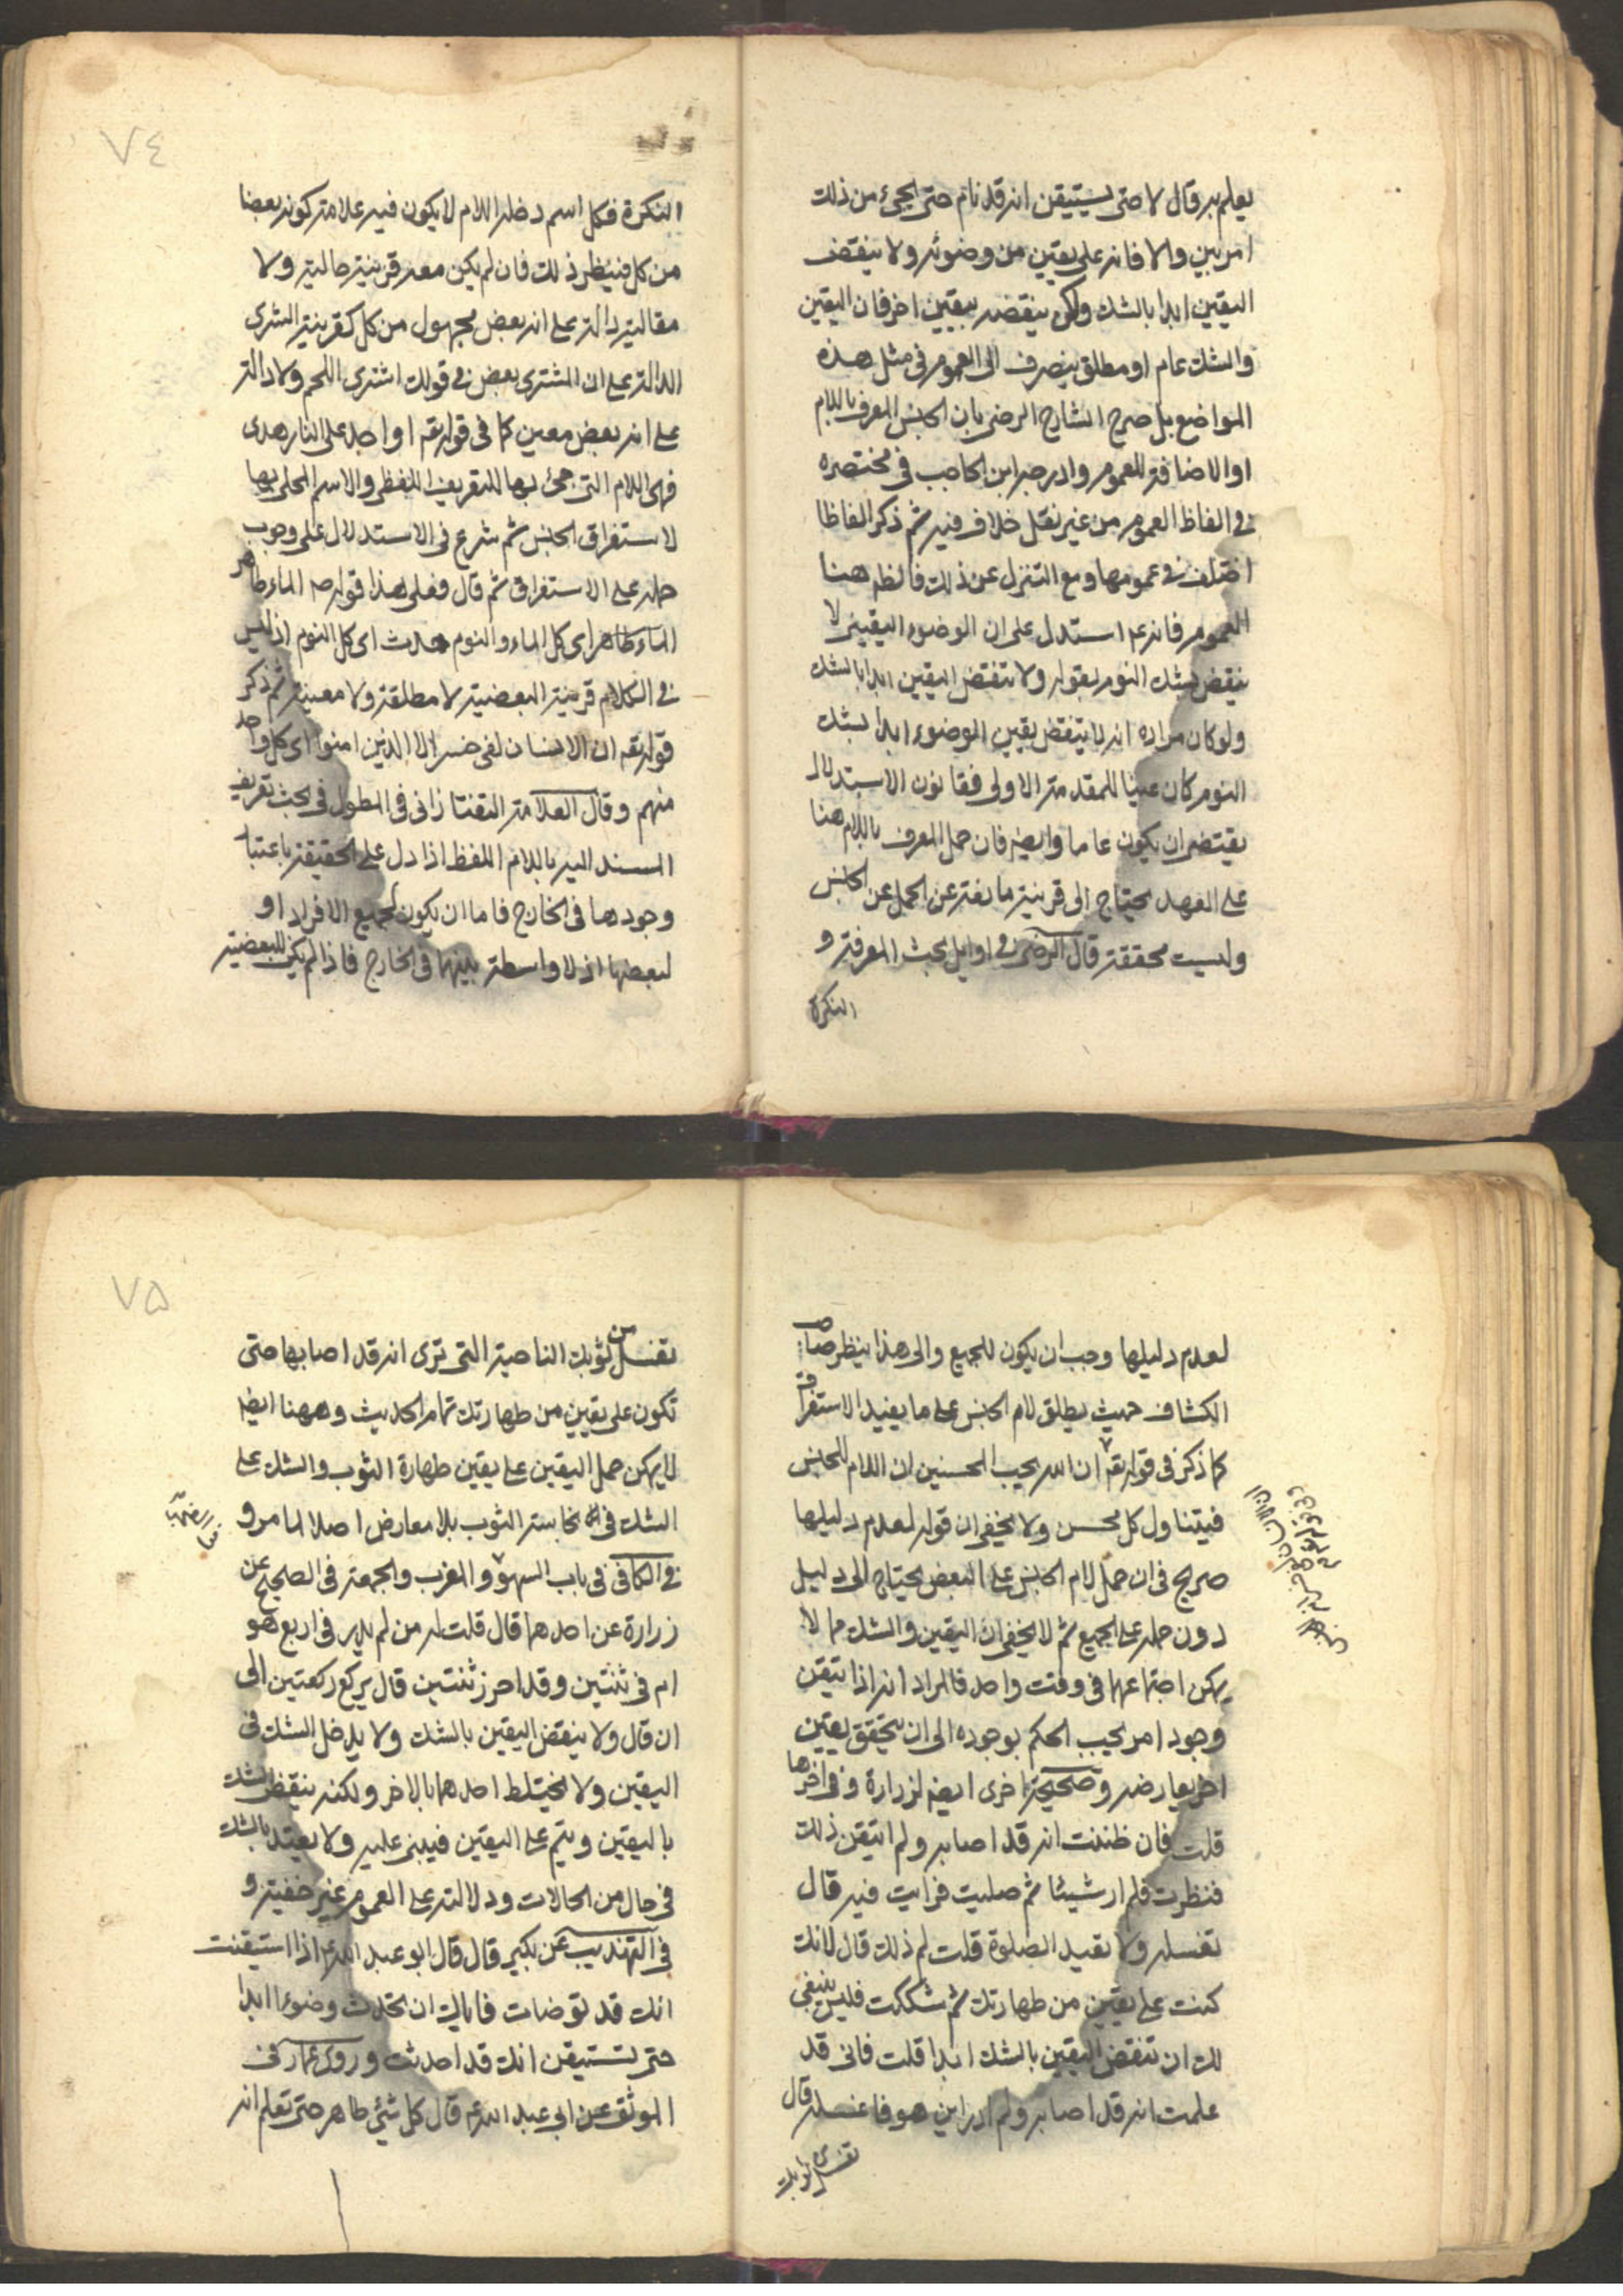 يعلم به قال لا حتى يستيقن انه قد نام حتى يجئ من ذلك
امر بين والا فانه على يقين من وضوئه ولا ينقض
اليقين ابدا بالشك ولكن ينقضه بيقين اخر فان اليقين
والشك عام او مطلق ينصرف الى العموم في مثل هذه
المواضع بل صرح الشارح الرضي بان الجنس المعرف باللام
او الاضافة للعموم وادرجه ابن الحاجب في مختصره
في الفاظ العموم من غير نقل خلاف فيه ثم ذكر الفاظا
اختلف في عمومها ومع التنزل عن ذلك فالظ هنا
العموم فانه ع استدل على ان الوضوء اليقيني لا
ينقض بشك النوم بقوله ولا تنقض اليقين ابدا بالشك
ولو كان مراده انه لا ينقض يقين الوضوء ابدا بشك
النوم كان عينا للمقدمة الاولى فقانون الاستدلال
يقتضي ان يكون عاما وايضا فان حمل المعرف باللام هنا
على العهد يحتاج الى قرينة مانعة عن الحمل عن الجنس
وليست محققة قال الرضي في اوايل بحث المعرفة و
النكرة
٧٤
النكرة فكل اسم دخله اللام لا يكون فيه علامة كونه بعضا
من كل فينظر ذلك فان لم يكن معه قرينة حالية ولا
مقالية دالة على انه بعض مجهول من كل كقرينة الشرى
الدالة على ان المشترى بعض في قولك اشترى اللحم ولا دالة
على انه بعض معين كما في قوله تعم او اجد على النار هدى
فهى اللام التى جئ بها للتعريف اللفظى والاسم المحلى بها
لاستغراق الجنس ثم شرع في الاستدلال على وجوب
حمله على الاستغراق ثم قال فعلى هذا قوله ص الماء طاهر
الماء طاهر اى كل الماء والنوم حدث اى كل النوم اذ ليس
في الكلام قرينة البعضية لا مطلقة ولا معينة ثم ذكر
قوله تعم ان الانسان لفى خسر الا الذين امنوا اى كل واحد
منهم وقال العلامة التفتازانى في المطول في بحث تعريف
المسند اليه باللام اللفظ اذا دل على الحقيقة باعتبار
وجودها في الخارج فاما ان يكون لجميع الافراد او
لبعضها اذ لا واسطة بينهما في الخارج فاذا لم يكن للبعضية
لعدم دليلها وجب ان يكون للجميع والى هذا ينظر صاحب
الكشاف حيث يطلق لام الجنس على ما يفيد الاستغراق
كما ذكر في قوله تعم ان الله يحب المحسنين ان اللام للجنس
فيتناول كل محسن ولا يخفى ان قوله لعدم دليلها
صريح في ان حمل لام الجنس على البعض يحتاج الى دليل
دون حمله على الجميع ثم لا يخفى ان اليقين والشك مما لا
يمكن اجتماعهما في وقت واحد فالمراد انه اذا تيقن
وجود امر يجب الحكم بوجوده الى ان يتحقق يقين
اخر يعارضه وصحيحة اخرى ايضا لزرارة وفي اخرها
قلت فان ظننت انه قد اصابه ولم اتيقن ذلك
فنظرت فلم ار شيئا ثم صليت فرايت فيه قال
تغسله ولا تعيد الصلوة قلت لم ذلك قال لانك
كنت على يقين من طهارتك ثم شككت فليس ينبغى
لك ان تنقض اليقين بالشك ابدا قلت فانى قد
علمت انه قد اصابه ولم ادر اين هو فاغسله قال
تغسل من ثوبك
٧٥
تغسل من ثوبك الناحية التى ترى انه قد اصابها حتى
تكون على يقين من طهارتك تمام الحديث وههنا ايضا
لا يمكن حمل اليقين على يقين طهارة الثوب والشك على
الشك في نجاسة الثوب بلا معارض اصلا لما مر و
في الكافى في باب السهو و المغرب والجمعة في الصحيح عن
زرارة عن احدهما قال قلت له من لم يدر في اربع هو
ام في ثنتين وقد احرز ثنتين قال يركع ركعتين الى
ان قال ولا ينقض اليقين بالشك ولا يدخل الشك في
اليقين ولا يختلط احدهما بالاخر ولكنه ينقض الشك
باليقين ويتم على اليقين فيبنى عليه ولا يعتد بالشك
في حال من الحالات ودلالته على العموم غير خفية و
في التهذيب عن بكير قال قال ابو عبد الله ع اذا استيقنت
انك قد توضات فاياك ان تحدث وضوءا ابدا
حتى تستيقن انك قد احدثت وروى عمار في
الموثق عن ابى عبد الله ع قال كل شئ طاهر حتى تعلم انه